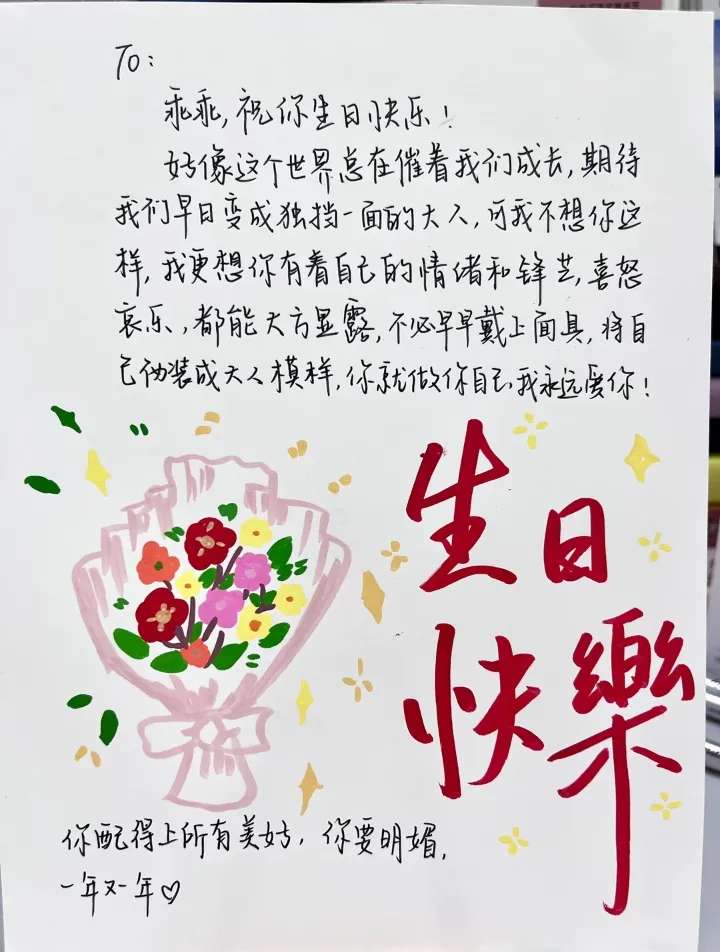 To:
乖乖,祝你生日快乐!
好像这个世界总在催着我们成长,期待
我们早日变成独挡一面的大人,可我不想你这
样,我更想你有着自己的情绪和锋芒,喜怒
哀乐,都能大方显露,不必早早戴上面具,将自
己伪装成大人模样,你就做你自己,我永远爱你!
生日
快樂
你配得上所有美好,你要明媚,
一年又一年♡